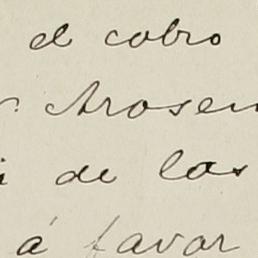 el cobro
Arosem
de las
á favor